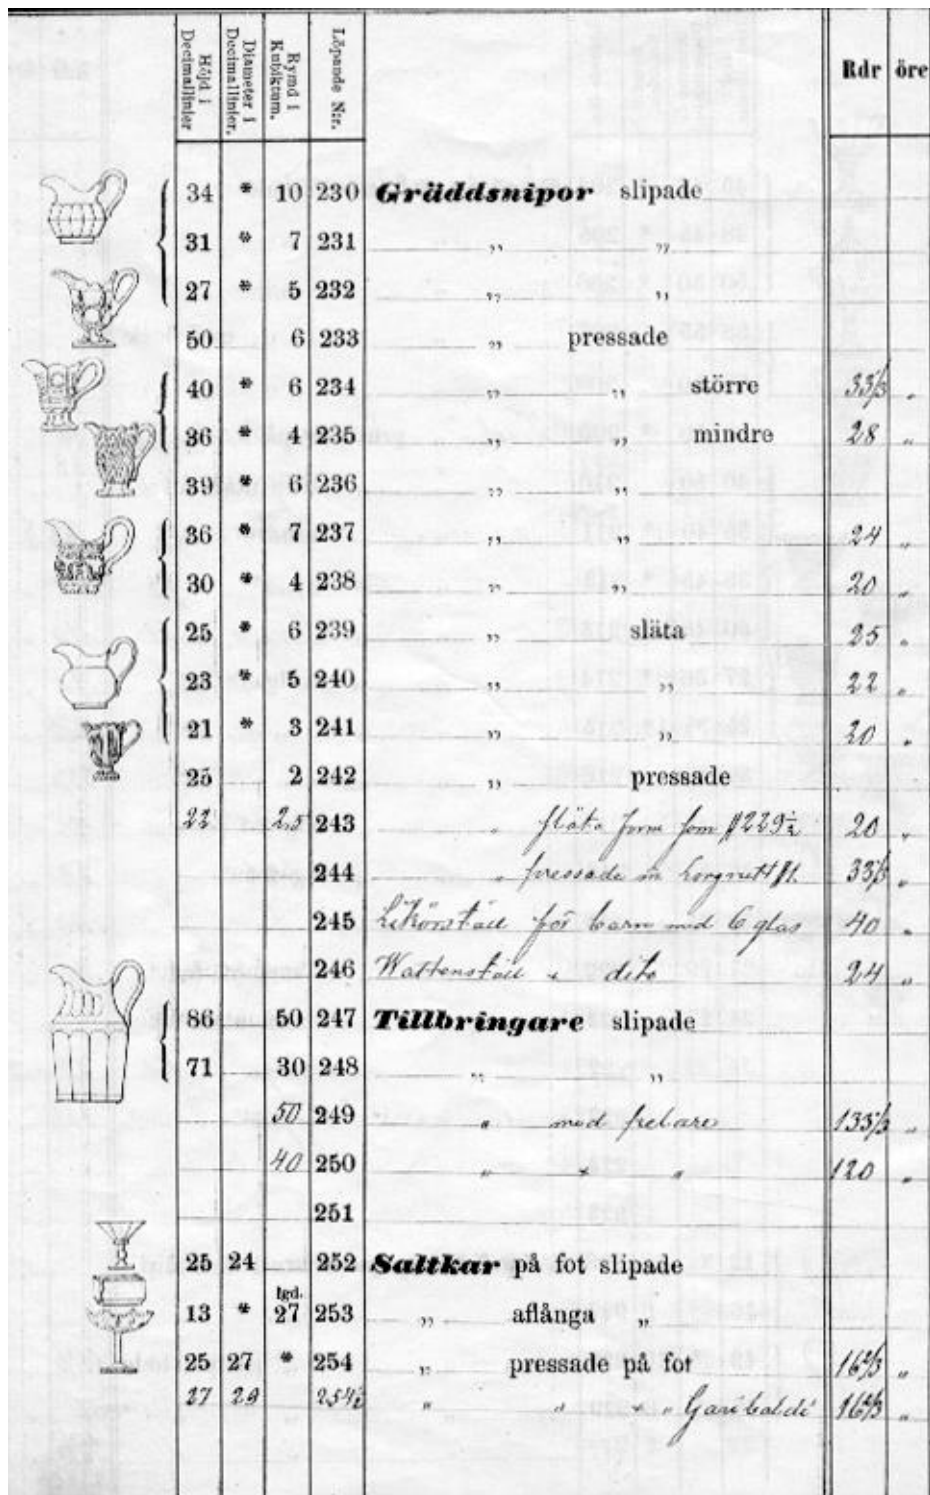 Höjd i Decimallinier Diameter i Decimallinier. Rymd i Kubiktum. Löpande N:r. Rdr öre
34 * 10 230 Gräddsnipor slipade
31 * 7 231 „ „
27 * 5 232 „ „
50 6 233 „ pressade
40 * 6 234 „ „ större 33⅓ „
36 * 4 235 „ „ mindre 28 „
39 * 6 236 „ „
36 * 7 237 „ „ 24 „
30 * 4 238 „ „ 20 „
25 * 6 239 „ släta 25 „
23 * 5 240 „ „ 22 „
21 * 3 241 „ „ 20 „
25 2 242 „ pressade
22 2,5 243 „ släta form som 229½ 20 „
244 „ pressade m Lorgnett 33⅓ „
245 Likörställ för barn med 6 glas 40 „
246 Wattenställ „ dito 24 „
86 50 247 Tillbringare slipade
71 30 248 „ „
50 249 „ med 133⅓ „
40 250 „ „ „ 120 „
251
25 24 252 Saltkar på fot slipade
13 * lgd. 27 253 „ aflånga „
25 27 * 254 „ pressade på fot 16⅔ „
27 29 254½ „ „ „ „ Garibaldi 16⅔ „